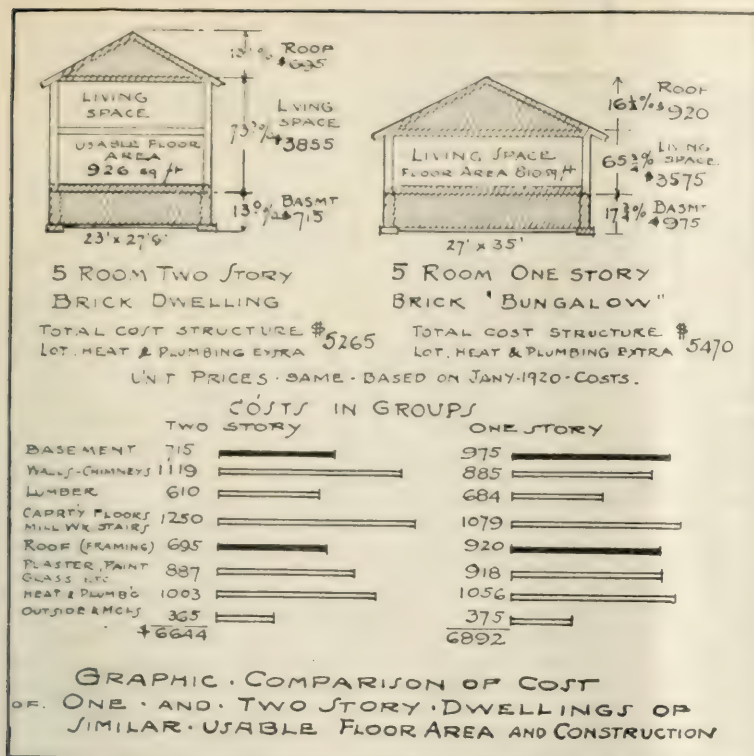 ROOF
$695
LIVING SPACE
USABLE FLOOR AREA
926 SQ FT
LIVING SPACE
$3855
BASMT
$715
23' x 27'6"
ROOF
16¼% $920
LIVING SPACE
FLOOR AREA 810 SQ FT
65¾% LIVING SPACE
$3575
17¾% BASMT
$975
27' x 35'
5 ROOM TWO STORY
BRICK DWELLING
TOTAL COST STRUCTURE $5265
LOT, HEAT & PLUMBING EXTRA
5 ROOM ONE STORY
BRICK "BUNGALOW"
TOTAL COST STRUCTURE $5470
LOT, HEAT & PLUMBING EXTRA
UNIT PRICES · SAME · BASED ON JANY · 1920 · COSTS.
COSTS IN GROUPS
TWO STORY ONE STORY
BASEMENT 715 975
WALLS-CHIMNEYS 1119 885
LUMBER 610 684
CARPRTY FLOORS
MILL WK STAIRS 1250 1079
ROOF (FRAMING) 695 920
PLASTER, PAINT
GLASS ETC 887 918
HEAT & PLUMB'G 1003 1056
OUTSIDE & MCLS 365 375
$6644 6892
GRAPHIC · COMPARISON OF COST
OF · ONE · AND · TWO STORY · DWELLINGS OF
SIMILAR · USABLE FLOOR AREA AND CONSTRUCTION